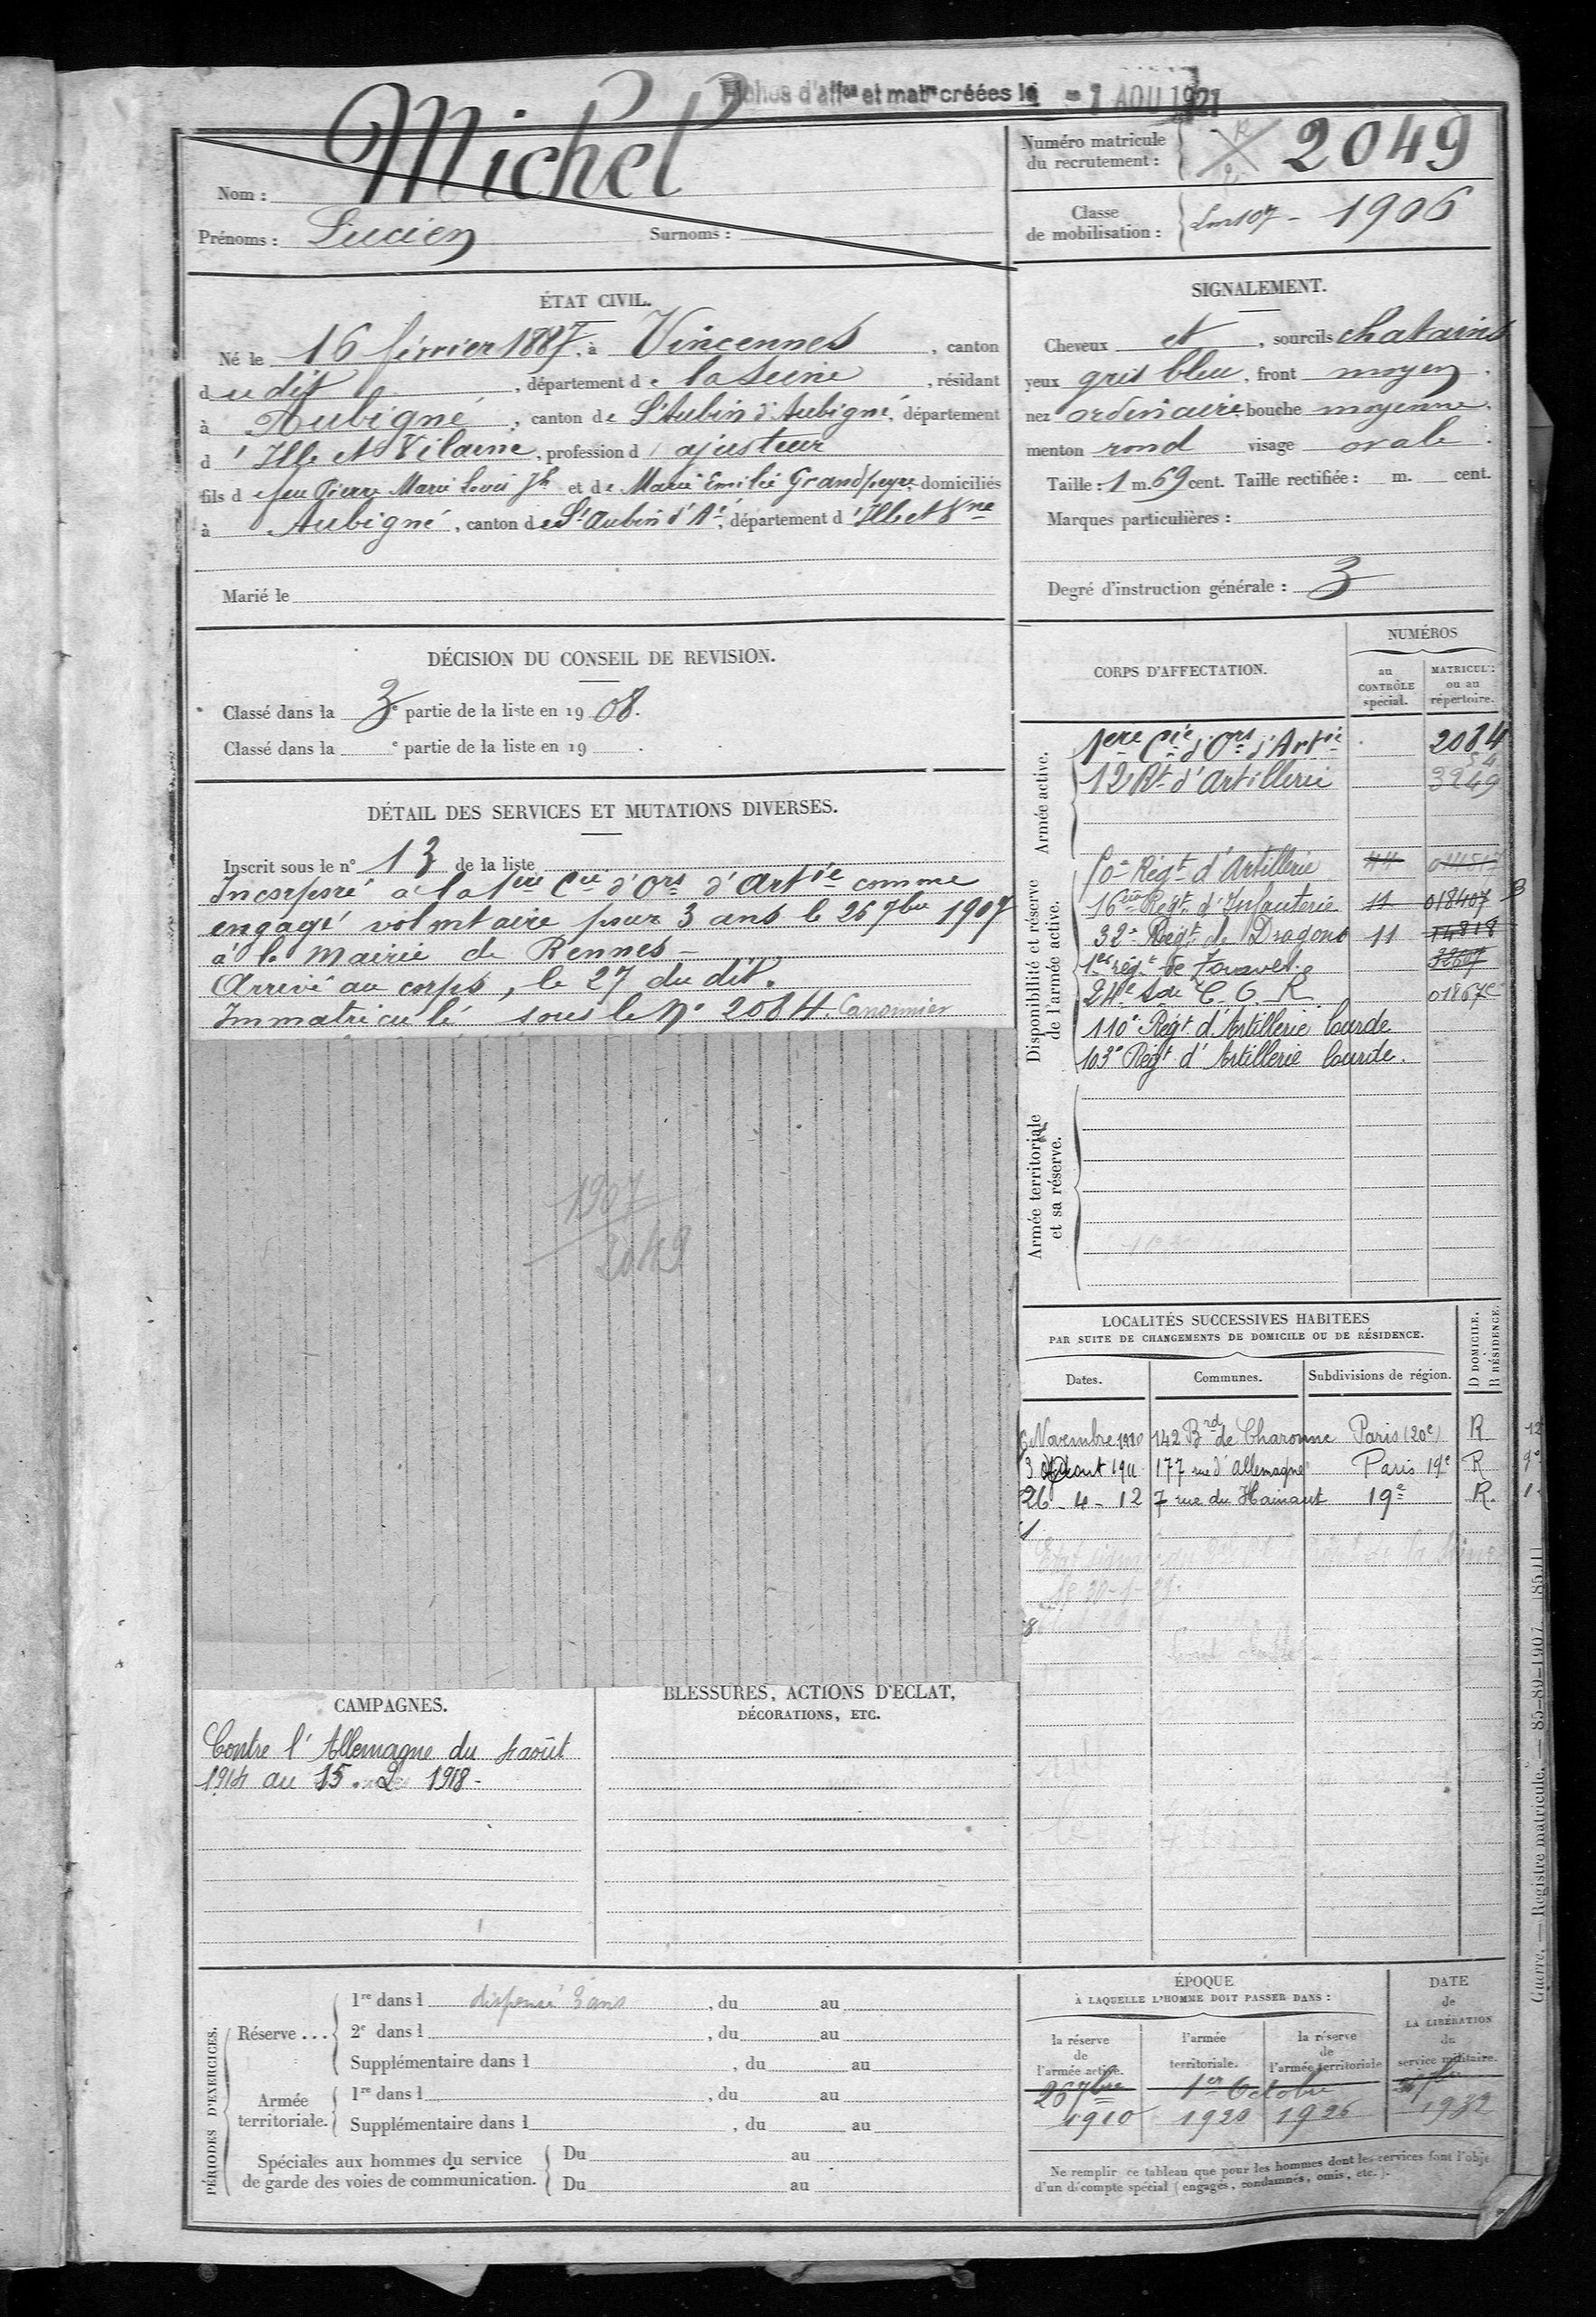 Fiches d'affon et matre créées le - 1 AOU 1921
Michel
Nom :
Prénoms : Lucien Surnoms :
Numéro matricule
du recrutement : 2049
Classe
de mobilisation : 1906
ÉTAT CIVIL.
Né le 16 février 1887, à Vincennes, canton
d udit, département de la Seine, résidant
à Aubigné, canton de St Aubin d'Aubigné, département
d'Ille et Vilaine, profession d'ajusteur
fils de feu Pierre Marie Louis Jh et de Marie Emilie Grandpeyre, domiciliés
à Aubigné, canton de St Aubin d'Aé, département d'Ille et Vne
Marié le
SIGNALEMENT.
Cheveux et, sourcils chatains
yeux gris bleu, front moyen,
nez ordinaire bouche moyenne,
menton rond visage ovale.
Taille : 1 m. 69 cent. Taille rectifiée : m. cent.
Marques particulières :
Degré d'instruction générale : 3
DÉCISION DU CONSEIL DE REVISION.
Classé dans la 3e partie de la liste en 1908.
Classé dans la e partie de la liste en 19 .
DÉTAIL DES SERVICES ET MUTATIONS DIVERSES.
Inscrit sous le n° 13 de la liste
Incorporé à la 1ère Cie d'Ors d'Artie comme
engagé volontaire pour 3 ans le 26 7bre 1907
à la mairie de Rennes -
Arrivé au corps, le 27 du dit.
Immatriculé sous le No 2084. Canonnier
1907
2049
CORPS D'AFFECTATION.
NUMÉROS
au
CONTRÔLE
spécial.
MATRICULE
ou au
répertoire.
Armée active.
1ere Cie d'Ors d'Artie 2084
12 Rt d'Artillerie 3249
54
Disponibilité et réserve
de l'armée active.
10e Régt d'Artillerie 44
16ème Régt d'Infanterie 11 018407 B
32e Régt de Dragons 11 14818
1er régt de Zouaves
24e Son C. O. R. 01867c
110e Régt d'Artillerie lourde
103e Régt d'Artillerie lourde.
Armée territoriale
et sa réserve.
LOCALITÉS SUCCESSIVES HABITÉES
PAR SUITE DE CHANGEMENTS DE DOMICILE OU DE RÉSIDENCE.
Dates. Communes. Subdivisions de région. D DOMICILE. R RÉSIDENCE.
6 Novembre 1910 142 Brd de Charonne Paris (20e) R 12
3 Aout 1911 177 rue d'Allemagne Paris 19e R 9e
26 - 4 - 12 7 rue du Hainaut 19e R. 1
CAMPAGNES.
Contre l'Allemagne du 4 août
1914 au 15 1918 -
BLESSURES, ACTIONS D'ÉCLAT,
DÉCORATIONS, ETC.
PÉRIODES D'EXERCICES.
Réserve ...
1re dans l dispensé 3 ans, du au
2e dans l , du au
Supplémentaire dans l , du au
Armée
territoriale.
1re dans l , du au
Supplémentaire dans l , du au
Spéciales aux hommes du service
de garde des voies de communication.
Du au
Du au
ÉPOQUE
À LAQUELLE L'HOMME DOIT PASSER DANS :
la réserve
de
l'armée active.
l'armée
territoriale.
la réserve
de
l'armée territoriale
DATE
de
LA LIBÉRATION
du
service militaire.
26 7bre 1er Octobre
1910 1920 1926 1932
Ne remplir ce tableau que pour les hommes dont les services font l'objet
d'un décompte spécial (engagés, condamnés, omis, etc.).
Guerre. — Registre matricule. — 85-80-1907.